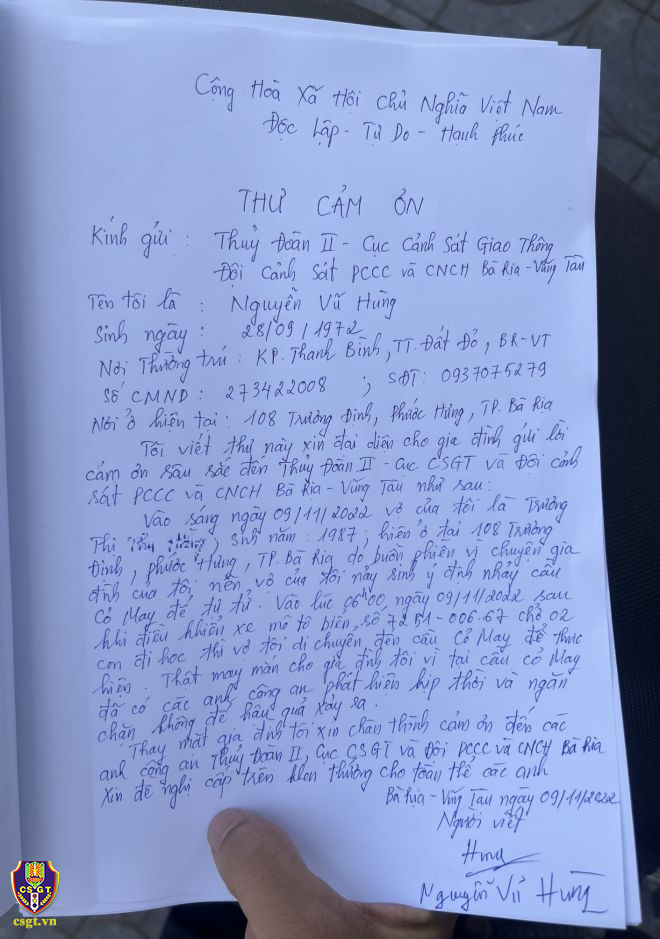 Cộng Hoà Xã Hội Chủ Nghĩa Việt Nam
Độc Lập - Tự Do - Hạnh Phúc
THƯ CẢM ƠN
Kính gửi : Thuỷ Đoàn II - Cục Cảnh Sát Giao Thông
Đội Cảnh Sát PCCC và CNCH Bà Rịa - Vũng Tàu
Tên tôi là : Nguyễn Vũ Hùng
Sinh ngày : 28/09/1972
Nơi Thường trú : KP. Thanh Bình, TT. Đất Đỏ, BR-VT
Số CMND : 273422008 ; SĐT: 0937075279
Nơi ở hiện tại : 108 Trương Định, Phước Hưng, TP. Bà Rịa
Tôi viết thư này xin đại diện cho gia đình gửi lời
cám ơn sâu sắc đến Thuỷ Đoàn II - Cục CSGT và Đội cảnh
sát PCCC và CNCH Bà Rịa - Vũng Tàu như sau:
Vào sáng ngày 09/11/2022 vợ của tôi là Trương
Thị ; sinh năm : 1987 ; hiện ở tại 108 Trương
Định, Phước Hưng, TP. Bà Rịa do buồn phiền vì chuyện gia
đình của tôi, nên vợ của tôi nảy sinh ý định nhảy cầu
Cỏ May để tự tử. Vào lúc 06h00 ngày 09/11/2022 sau
khi điều khiển xe mô tô biển số 72B1-006.67 chở 02
con đi học thì vợ tôi di chuyển đến cầu Cỏ May để thực
hiện. Thật may mắn cho gia đình tôi vì tại cầu cỏ May
đã có các anh công an phát hiện kịp thời và ngăn
chặn không để hậu quả xảy sa.
Thay mặt gia đình tôi xin chân thành cảm ơn đến các
anh công an Thuỷ Đoàn II, Cục CSGT và Đội PCCC và CNCH Bà Rịa
Xin đề nghị cấp trên khen thưởng cho toàn thể các anh
Bà Rịa - Vũng Tàu ngày 09/11/2022
Người viết
Hùng
Nguyễn Vũ Hùng
CSGT
csgt.vn